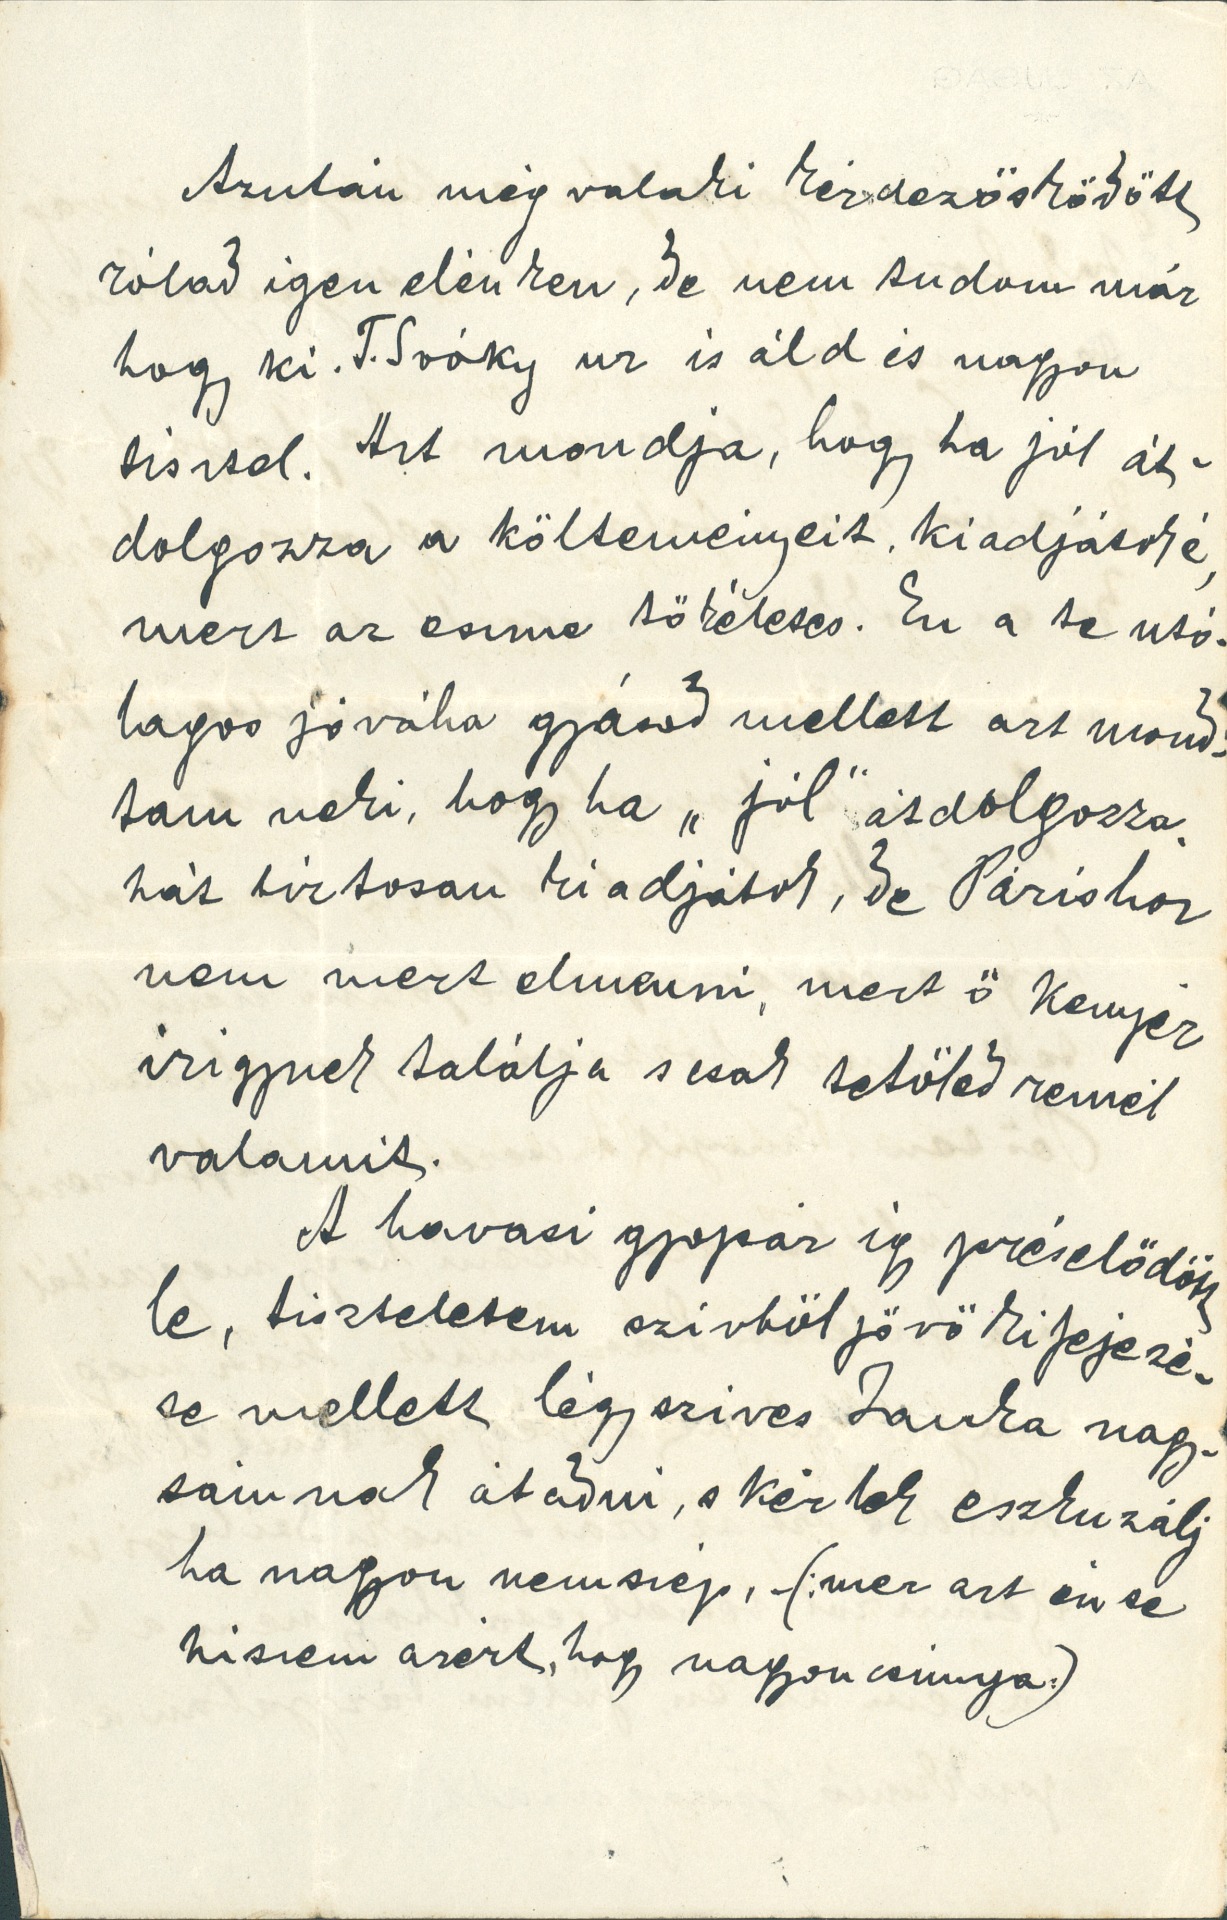 Azután még valaki kérdezösködött
rólad igen élénken, de nem tudom már
hogy ki. T. Svóky ur is áld és nagyon
tisztel. Azt mondja, hogy ha jól át-
dolgozza a költeményeit, kiadjátoké,
mert az eszme tökéletes. Én a te utó-
lagos jóváha gyásod mellett azt mond-
tam neki, hogy ha „jól" átdolgozza,
hát biztosan kiadjátok, de Párishoz
nem mert elmenni, mert ö kenyér
irigynek találja s csak tetöled remél
valamit.
A havasi gyopár ig préselödött
le, tiszteletem szivböl jövö kifejezé-
se mellett légy szives Janka nagy-
sámnak átadni, s kérlek eszkuzálj
ha nagyon nem szép, (: mer azt én se
hiszem azért, hogy nagyon csunya:)